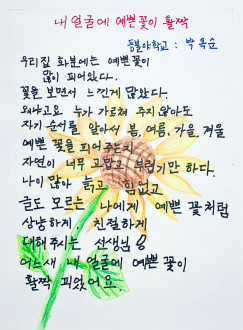 내 얼굴에 예쁜꽃이 활짝
등불야학교 : 박옥순
우리집 화분에는 예쁜꽃이
많이 피어있다.
꽃을 보면서 느낀게 많았다.
왜냐고요 누가 가르쳐 주지않아도
자기 순서를 알아서 봄, 여름, 가을, 겨울
예쁜 꽃을 피어주는지
자연이 너무 고맙고 부럽기만 하다.
나이 많아 늙고 힘없고
글도 모르는 나에게 예쁜 꽃처럼
상냥하게, 친절하게
대해주시는 선생님
어느새 내 얼굴에 예쁜 꽃이
활짝 피었어요.